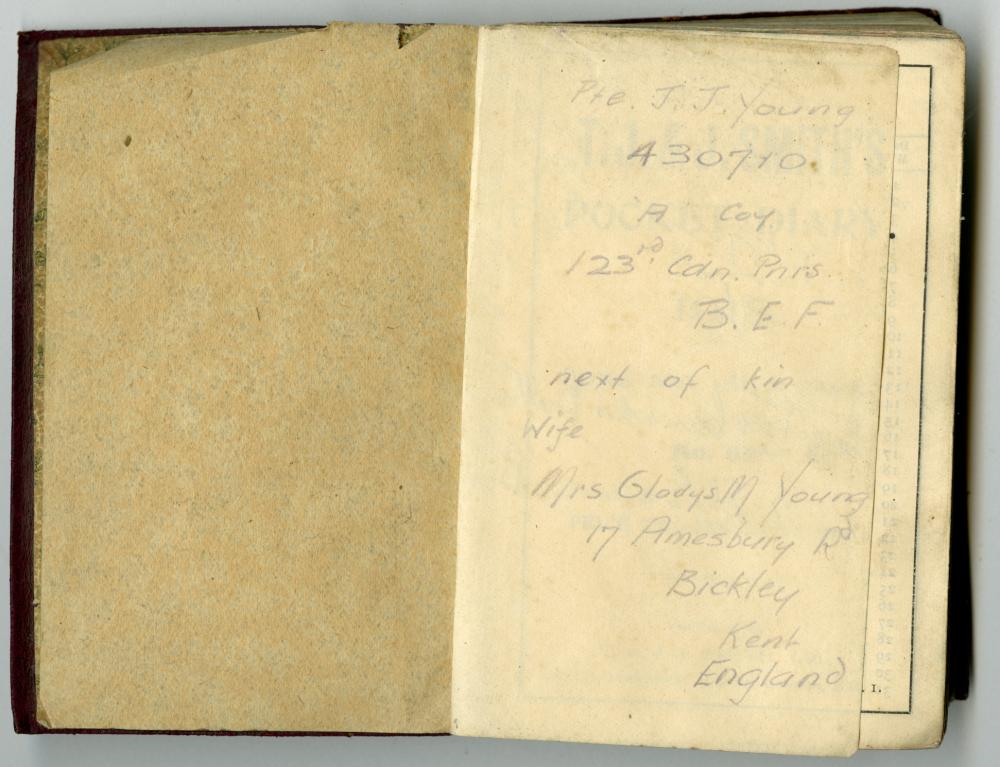 Pte. J. J. Young
A Coy.
123rd. Cdn. Pnrs.
B. E. F.
next of kin
Wife
Mrs Gladys M Young
17 Amesbury Rd
Bickley
Kent
England